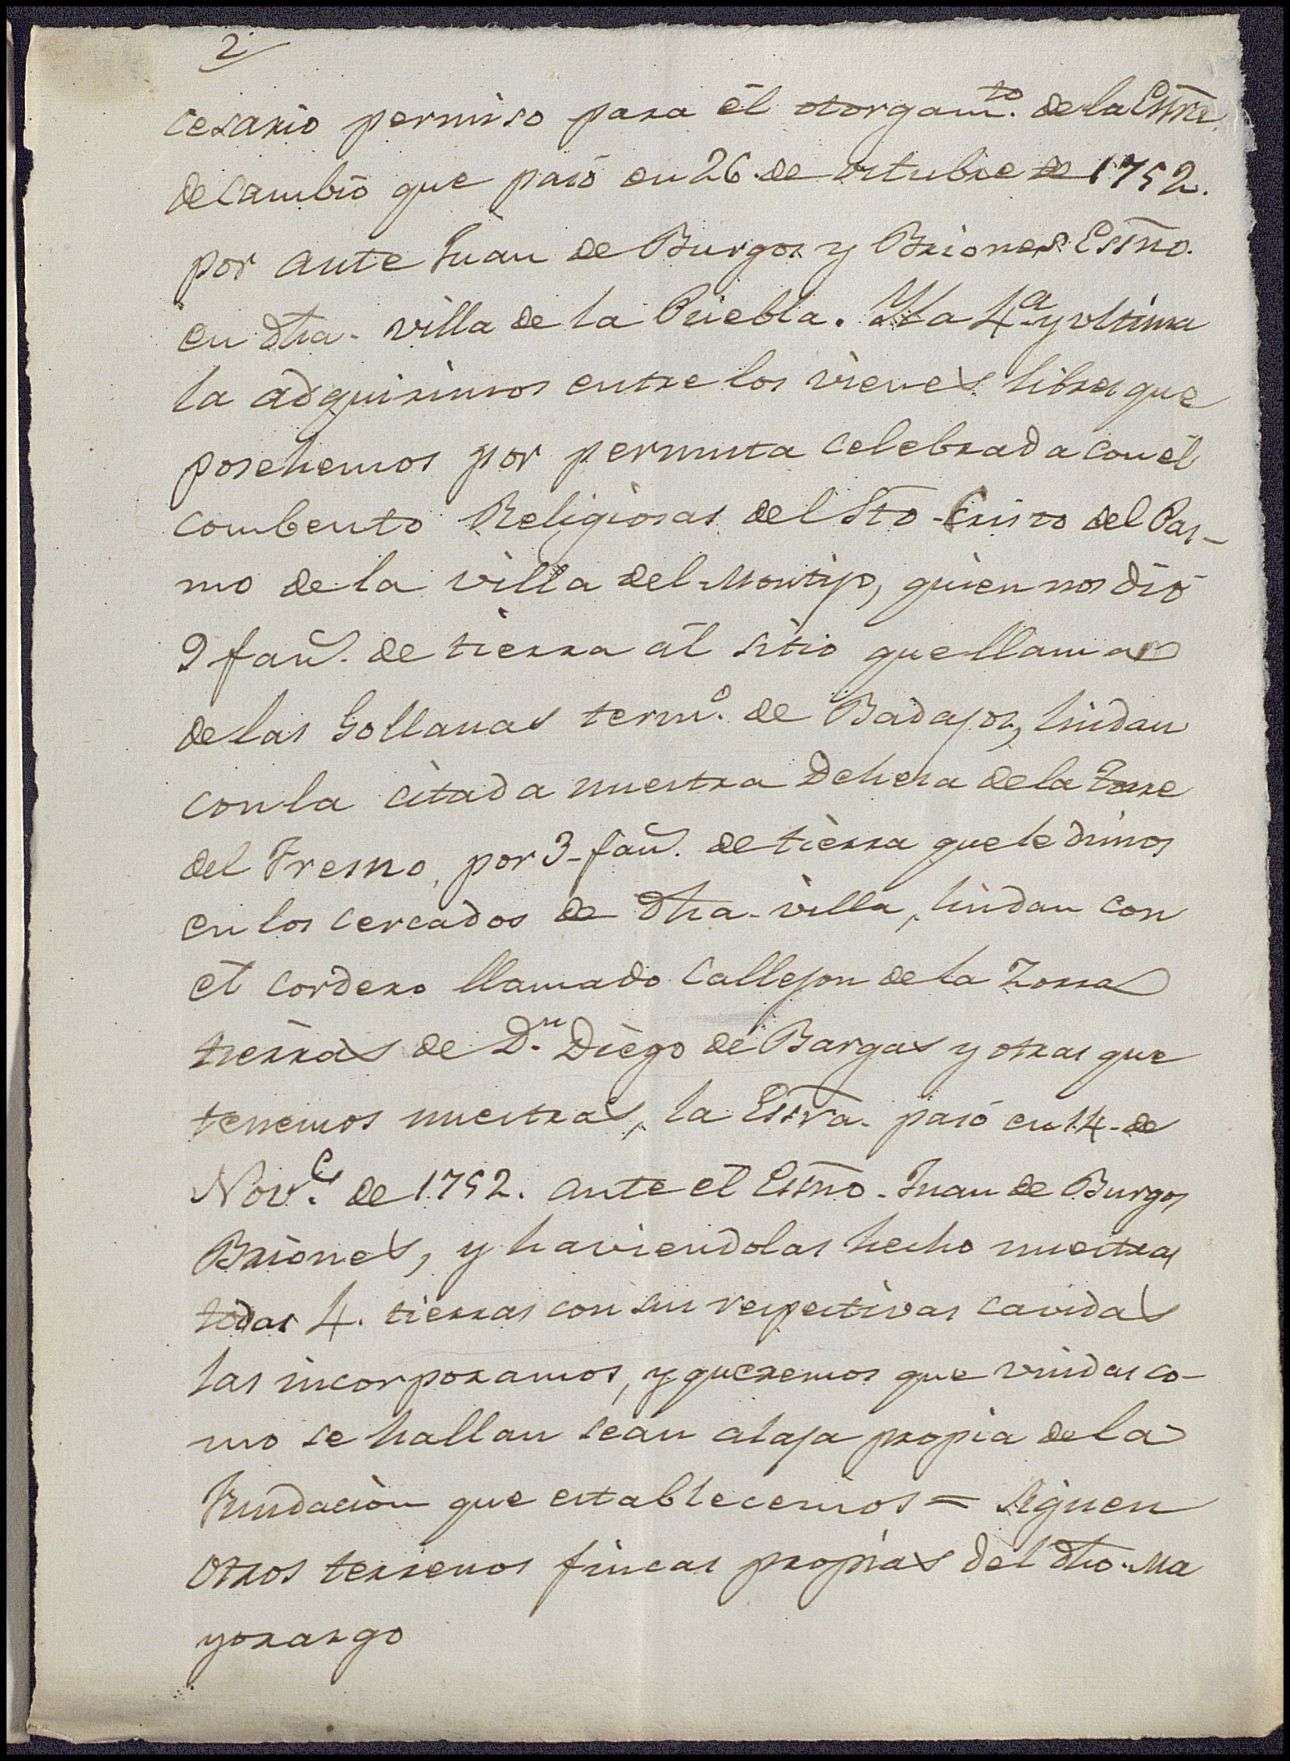 2
cesario permiso para él otorgam.to de la Essra.
de Cambio que pasó en 26 de octubre de 1752.
por ante Juan de Burgos y Briones Essno.
en dha. villa de la Puebla. Y la 4.a y ultima
la adquirimos entre los vienes libres que
posehemos por permuta celebrada con él
combento Religiosas del Sto. Cristo del Pas-
mo de la villa del Montijo, quien nos dió
9 fan.s de tierra al sitio que llaman
de las Gollanas term.o de Badajoz, lindan
con la citada nuestra Dehesa de la Torre
del Fresno, por 3 fan.s de tierra que le dimos
en los cercados de dha. villa, lindan con
el cordero llamado callejon de la Zorra
tierras de D.n Diego de Bargas y otras que
tenemos nuestras, la Essra. pasó en 14 de
Nov.e de 1752. ante el Essno. Juan de Burgos
Briones, y haviendolas hecho nuestras
todas 4. tierras con sus respectivas cavidas
las incorporamos, y queremos que vnidas co-
mo se hallan sean alaja propia de la
Fundacion que establecemos = Siguen
otros terrenos fincas propias del dho. Ma
yorazgo